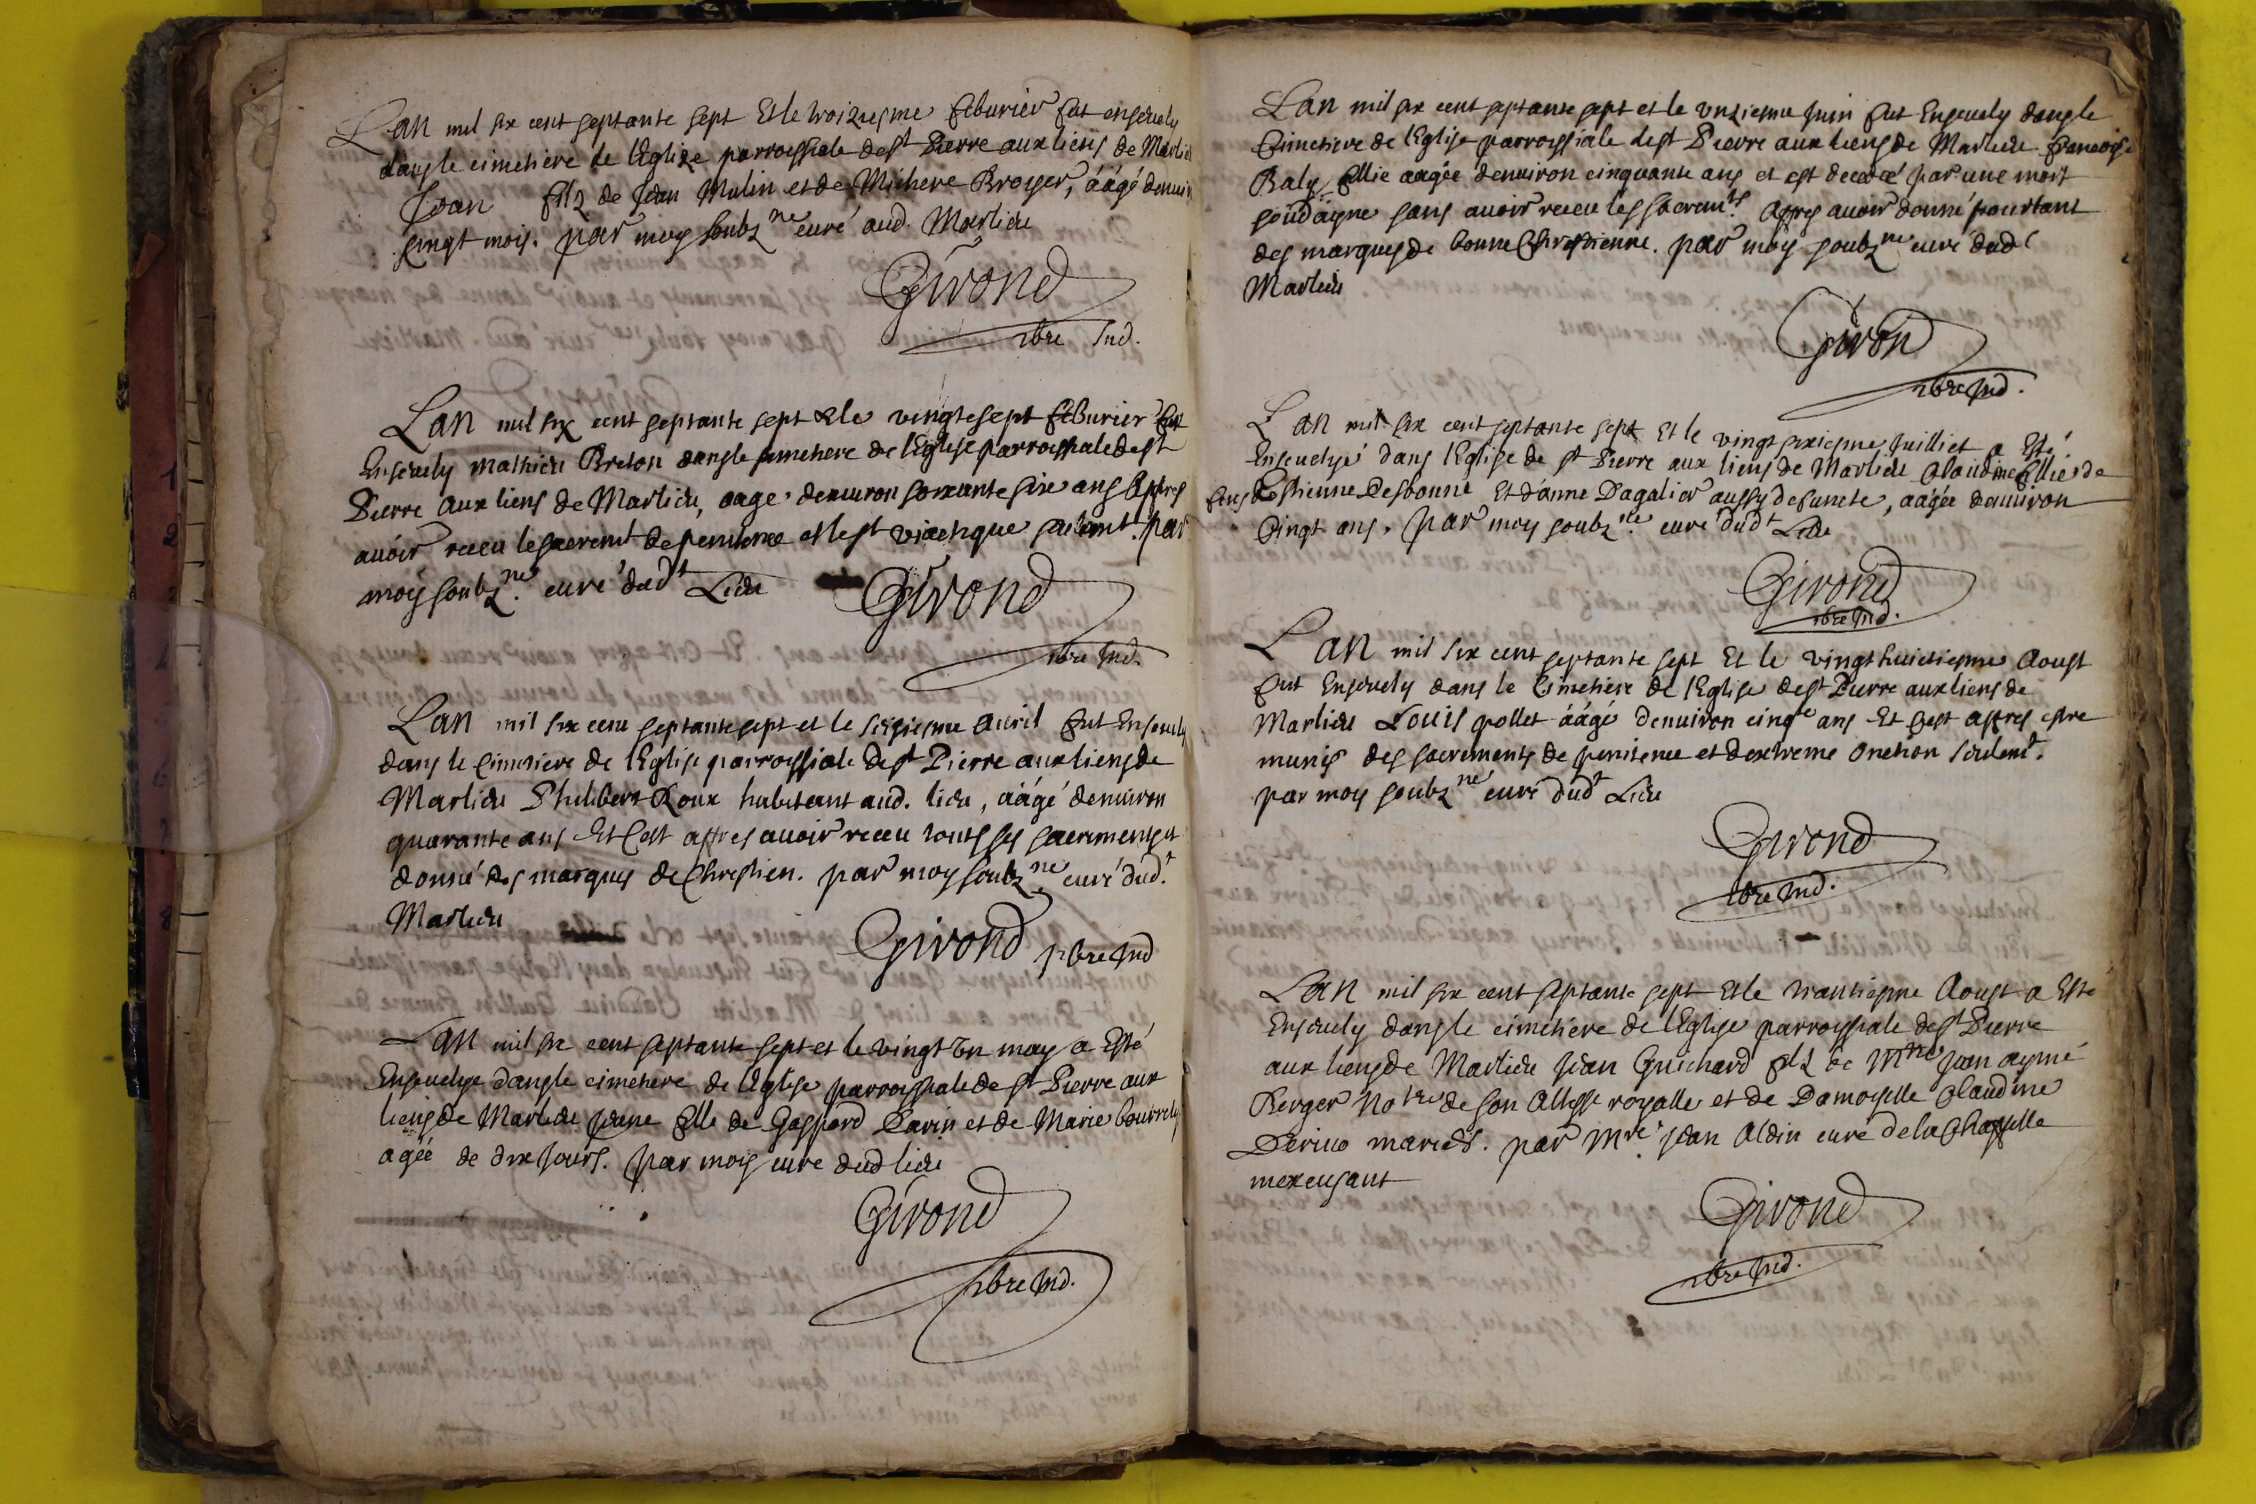 Lan mil six cent septante sept Et le troiziesme feburier fut enseuely
dans le cimetiere de lEglize parroissiale de st Pierre aux liens de Marlieu
Jean filz de Jean Mulin et de Michere Broyer, áágé denuiron
uingt mois. par moy soubzne curé aud. Marlieu
Girond
pbre Ind.
Lan mil six cent septante sept & le vingtesept feburier fut
Enseuely mathieu Breton dans le cimetiere de lEglise parroissiale de st
Pierre aux liens de Marlieu, aagé denuiron soixante six ans Aptres
auoir receu le sacremt de penitence et le st viatique seulemt. par
moy soubzne. curé dudt Lieu Girond
pbre Ind.
Lan mil six cent septante sept et le seiziesme Auril fut Enseuely
dans le Cimetiere de lEglise parroissiale de st Pierre aux liens de
Marlieu Philibert Roux habitant aud. lieu, áágé denuiron
quarante ans Et C'est aptres auoir receu touts ses sacrements et
donné des marques de Chrestien. par moy soubzne. curé dudt.
Marlieu
Girond pbre Ind
Lan mil six cent septante sept et le vingt Un may a Esté
Enseuelye dans le cimetiere de lEglise parroissiale de st Pierre aux
liens de Marlieu Jeane fille de Gaspard Parin et de Marie
agée de dix Jours. par moy cure dud lieu
Girond
pbre Ind.
Lan mil six cent septante sept et le unziesme Juin fut Enseuely dans le
Cimetiere de lEglise parroissiale de st Pierre aux liens de Marlieu francoise
Baly fillie aagée denuiron cinquante ans et est decedeé par une mort
soudayne sans auoir receu les sacremts. Aptres auoir donné pourtant
des marques de bonne Chrestienne. par moy soubzne curé dud
Marlieu
Giron
pbre Ind.
Lan mil six cent septante sept Et le vingt sixiesme Juilliet a Esté
Enseuelye dans lEglise de st Pierre aux liens de Marlieu Claudine fillie de
feus Estienne Desbonne Et d'anne Dagalier aussy defuncte, aágée denuiron
Vingt ans. par moy soubzne. curé dudt Lieu
Girond
pbre Ind.
Lan mil six cent septante sept Et le vingt huictiesme Aoust
fut Enseuely dans le Cimetiere de lEglise de st Pierre aux liens de
Marlieu Louis pollet áágé denuiron cinqe ans Et C'est aptres estre
munis des sacrements de penitence et dextreme onction seulemt.
par moy soubzne curé dudt Lieu
Girond
pbre Ind.
Lan mil six cent septante sept Et le trantiesme Aoust a Esté
Enseuely dans le cimetiere de lEglise parroissiale de st Pierre
aux liens de Marlieu Jean Guichard filz de Mre Jean aymé
Berger Notre de son Altesse royalle et de Damoyselle Claudine
mariés. par Mre. Jean Aldin curé de la Chappelle
mexcusant
Girond
pbre Ind.